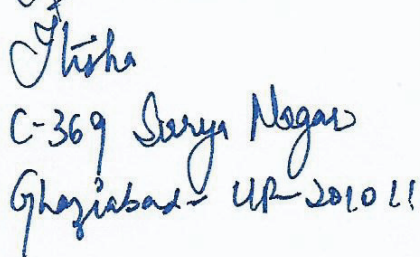 Itisha
C-369 Surya Nagar
Ghaziabad - UP-201011